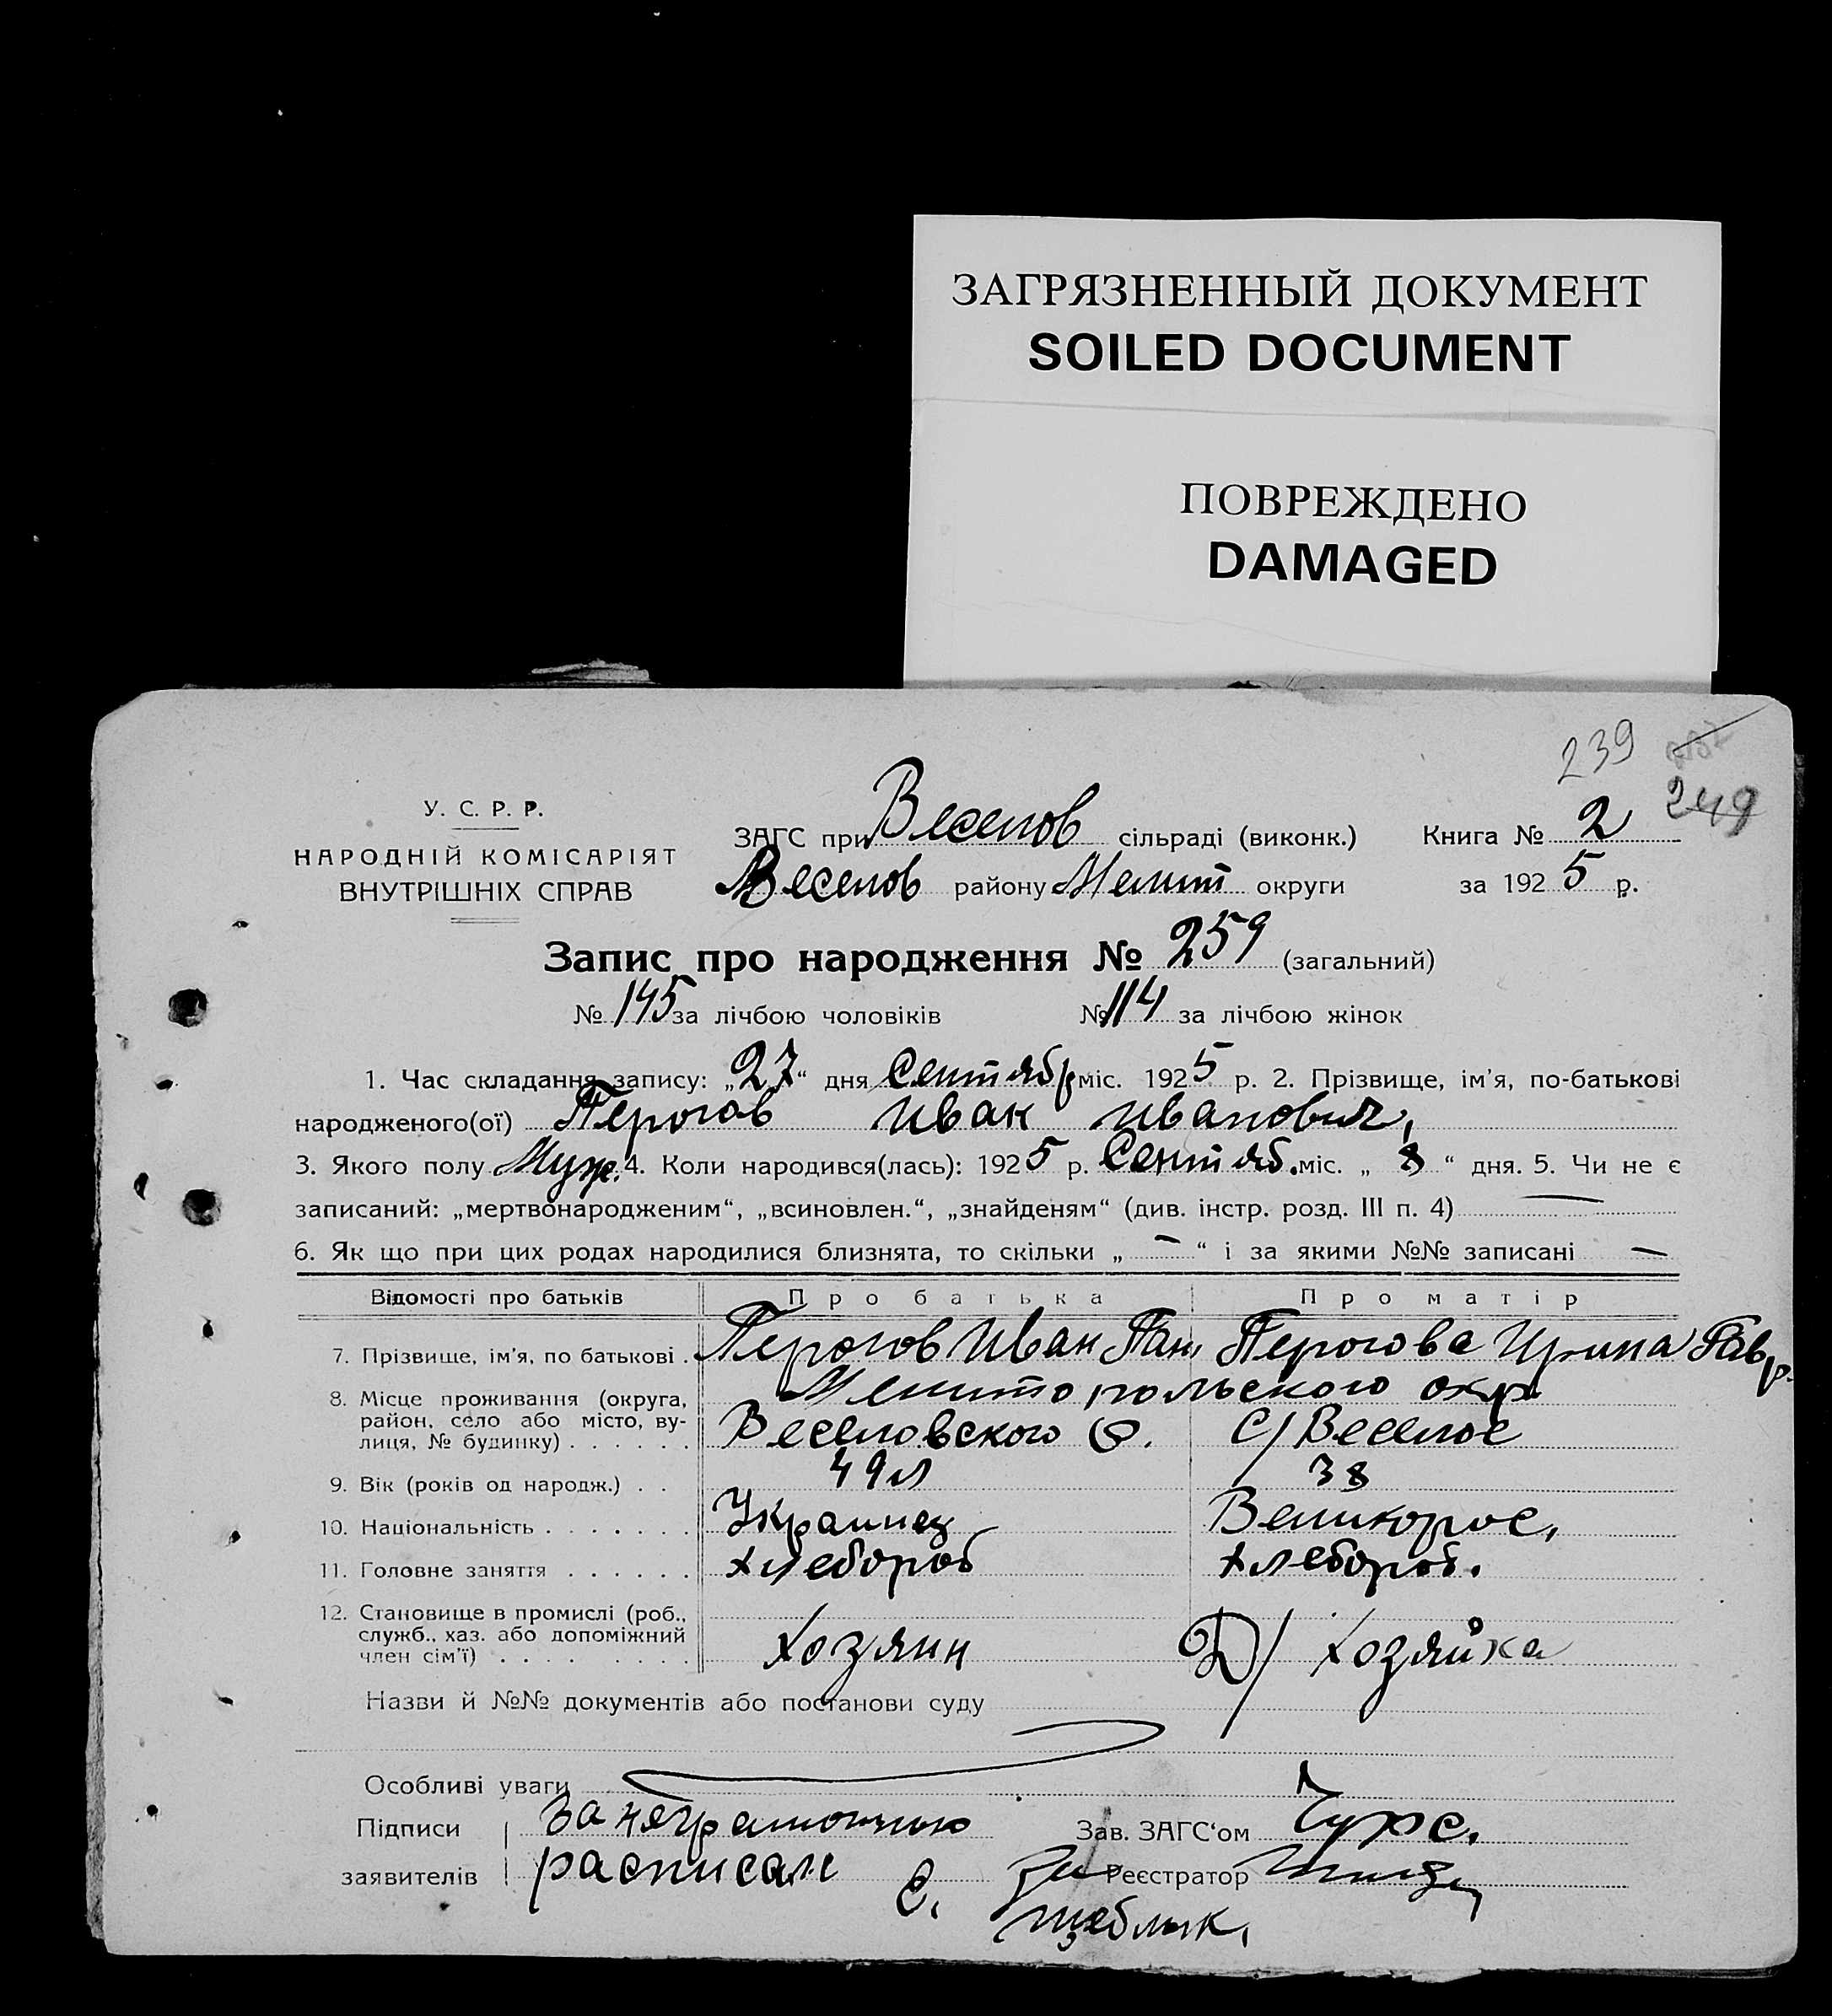 ЗАГРЯЗНЕННЫЙ ДОКУМЕНТ
SOILED DOCUMENT
ПОВРЕЖДЕНО
DAMAGED
239
249
У. С. Р. Р.
НАРОДНІЙ КОМІСАРІЯТ
ВНУТРІШНІХ СПРАВ
ЗАГС при Веселов сільраді (виконк.) Книга № 2
Веселов району Мелит округи за 1925 р.
Запис про народження № 259 (загальний)
№ 145 за лічбою чоловіків № 114 за лічбою жінок
1. Час складання запису: „27“ дня Сентябр міс. 1925 р. 2. Прізвище, ім'я, по-батькові
народженого(ої) Перогов Иван Иванович,
3. Якого полу Муж. 4. Коли народився(лась): 1925 р. Сентяб. міс. „ 8 “ дня. 5. Чи не є
записаний: „мертвонародженим“, „всиновлен.“, „знайденям“ (див. інстр. розд. III п. 4) —
6. Як що при цих родах народилися близнята, то скільки „ — “ і за якими №№ записані —
Відомості про батьків Про батька Про матір
7. Прізвище, ім'я, по батькові . Перогов Иван Пан, Перогова Ирина Гавр.
8. Місце проживання (округа, Мелитопольского окр
район, село або місто, ву-
лиця, № будинку) . . . . . . Веселовского р. С/Веселое
9. Вік (років од народж.) . . 49 л 38
10. Національність . . . . . . . Украинец Великорос,
11. Головне заняття . . . . . . Хлебороб Хлебороб.
12. Становище в промислі (роб.,
служб., хаз. або допоміжний
член сім'ї) . . . . . . . . Хозяин Д/ Хозяйка
Назви й №№ документів або постанови суду
Особливі уваги
Підписи За неграмотную Зав. ЗАГС‘ом
заявителів расписал Реєстратор
Щеблык.